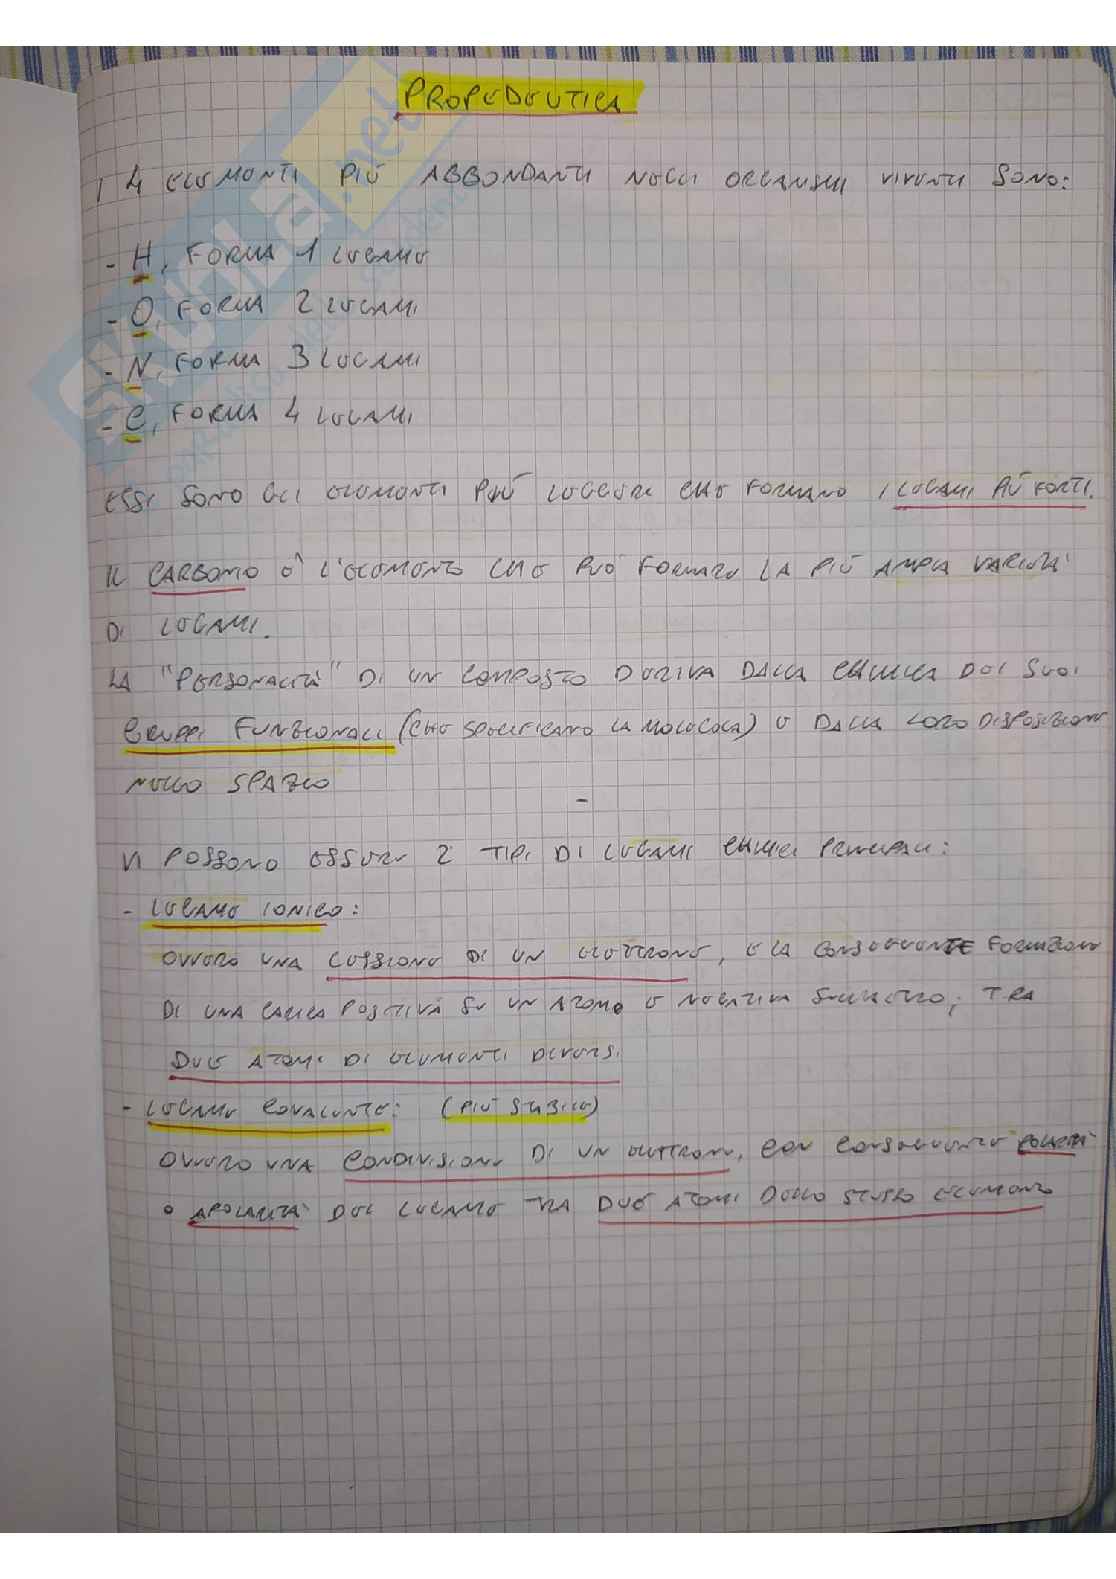 PROPEDEUTICA
I 4 ELEMENTI PIÙ ABBONDANTI NEGLI ORGANISMI VIVENTI SONO:
- H, FORMA 1 LEGAME
- O, FORMA 2 LEGAMI
- N, FORMA 3 LEGAMI
- C, FORMA 4 LEGAMI
ESSI SONO GLI ELEMENTI PIÙ LEGGERI CHE FORMANO I LEGAMI PIÙ FORTI.
IL CARBONIO È L'ELEMENTO CHE PUÒ FORMARE LA PIÙ AMPIA VARIETÀ
DI LEGAMI.
LA "PERSONALITÀ" DI UN COMPOSTO DERIVA DALLA CHIMICA DEI SUOI
GRUPPI FUNZIONALI (CHE SPECIFICANO LA MOLECOLA) E DALLA LORO DISPOSIZIONE
NELLO SPAZIO
VI POSSONO ESSERE 2 TIPI DI LEGAMI CHIMICI PRINCIPALI:
- LEGAME IONICO:
OVVERO UNA CESSIONE DI UN ELETTRONE, E LA CONSEGUENTE FORMAZIONE
DI UNA CARICA POSITIVA SU UN ATOMO E NEGATIVA SULL'ALTRO, TRA
DUE ATOMI DI ELEMENTI DIVERSI
- LEGAME COVALENTE: (PIÙ STABILE)
OVVERO UNA CONDIVISIONE DI UN ELETTRONE, CON CONSEGUENTE POLARITÀ
O APOLARITÀ DEL LEGAME TRA DUE ATOMI DELLO STESSO ELEMENTO
SKUOLA.net